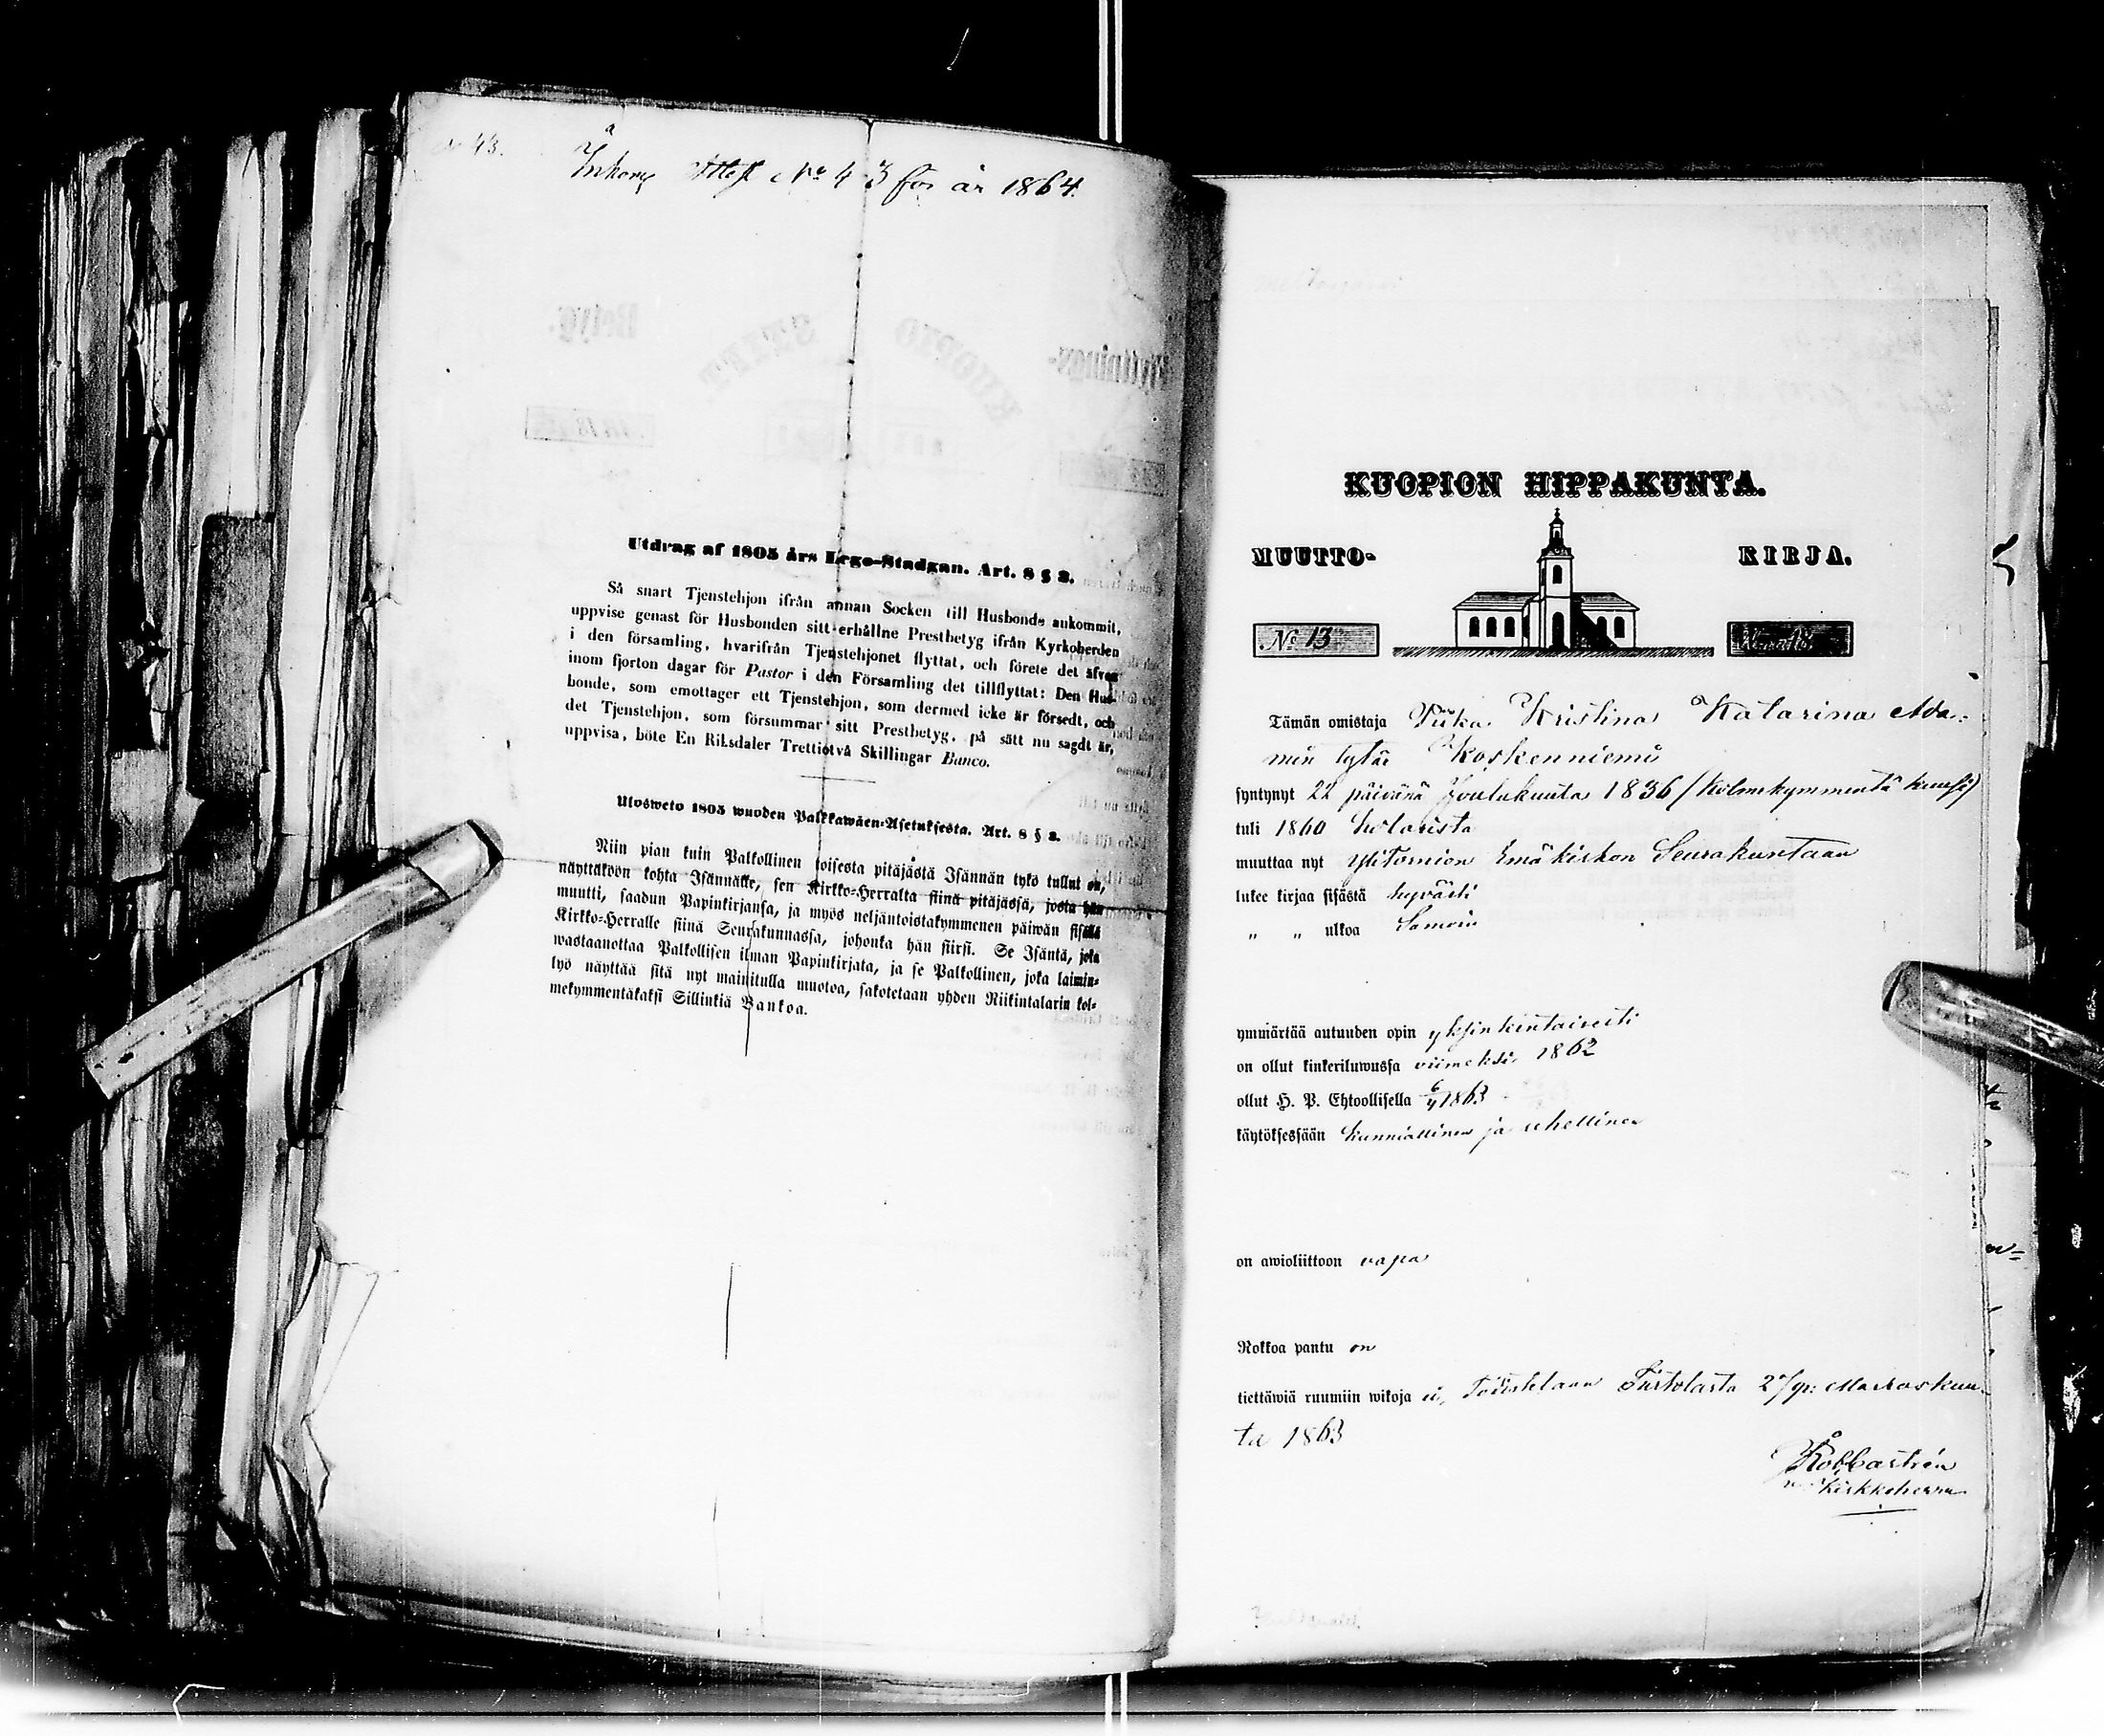 No 43.
Inkom Attest No 43 för år 1864.
Utdrag af 1805 års Lego-Stadgan. Art. 8 § 2.
Så snart Tjenstehjon ifrån annan Socken till Husbonde ankommit,
uppvise genast för Husbonden sitt erhållne Prestbetyg ifrån Kyrkoherden
i den församling, hvarifrån Tjenstehjonet flyttat, och förete det äfven
inom fjorton dagar för Pastor i den Församling det tillflyttat: Den Hus-
bonde, som emottager ett Tjenstehjon, som dermed icke är försedt, och
det Tjenstehjon, som försummar sitt Prestbetyg, på sätt nu sagdt är,
uppvisa, böte En Riksdaler Trettiotvå Skillingar Banco.
Ulosweto 1805 wuoden Palkkawäen-Asetuksesta. Art. 8 § 2.
Niin pian kuin Palkollinen toisesta pitäjästä Isännän tykö tullut on,
näyttäköön kohta Isännälle, sen Kirkko-Herralta siinä pitäjässä, josta hän
muutti, saadun Papinkirjansa, ja myös neljäntoistakymmenen päiwän sisällä
Kirkko-Herralle siinä Seurakunnassa, johonka hän siirsi. Se Isäntä, joka
wastaanottaa Palkollisen ilman Papinkirjata, ja se Palkollinen, joka laimin-
lyö näyttää sitä nyt mainitulla muotoa, sakotetaan yhden Riikintalarin kol-
mekymmentäkaksi Sillinkiä Bankoa.
KUOPION HIPPAKUNTA.
MUUTTO- KIRJA.
No 13
Tämän omistaja Piika Kristina Katarina Ada-
min tytär Koskenniemi
syntynyt 22 päivänä Joulukuuta 1836 (Kolmekymmentä kuusi)
tuli 1860 Kolarista
muuttaa nyt Ylitornion Emäkirkon Seurakuntaan
lukee kirjaa sisästä hyvästi
„ „ ulkoa Samoin
ymmärtää autuuden opin yksinkertaisesti
on ollut kinkeriluwussa viimeksi 1862
ollut H. P. Ehtoollisella 6/4 1863
käytöksessään kunniallinen ja rehellinen
on awioliittoon vapa
Rokkoa pantu on
tiettäwiä ruumiin wikoja ei, Todistetaan Turtolasta 2 p: Marraskuu-
ta 1863
Kirkkoherra